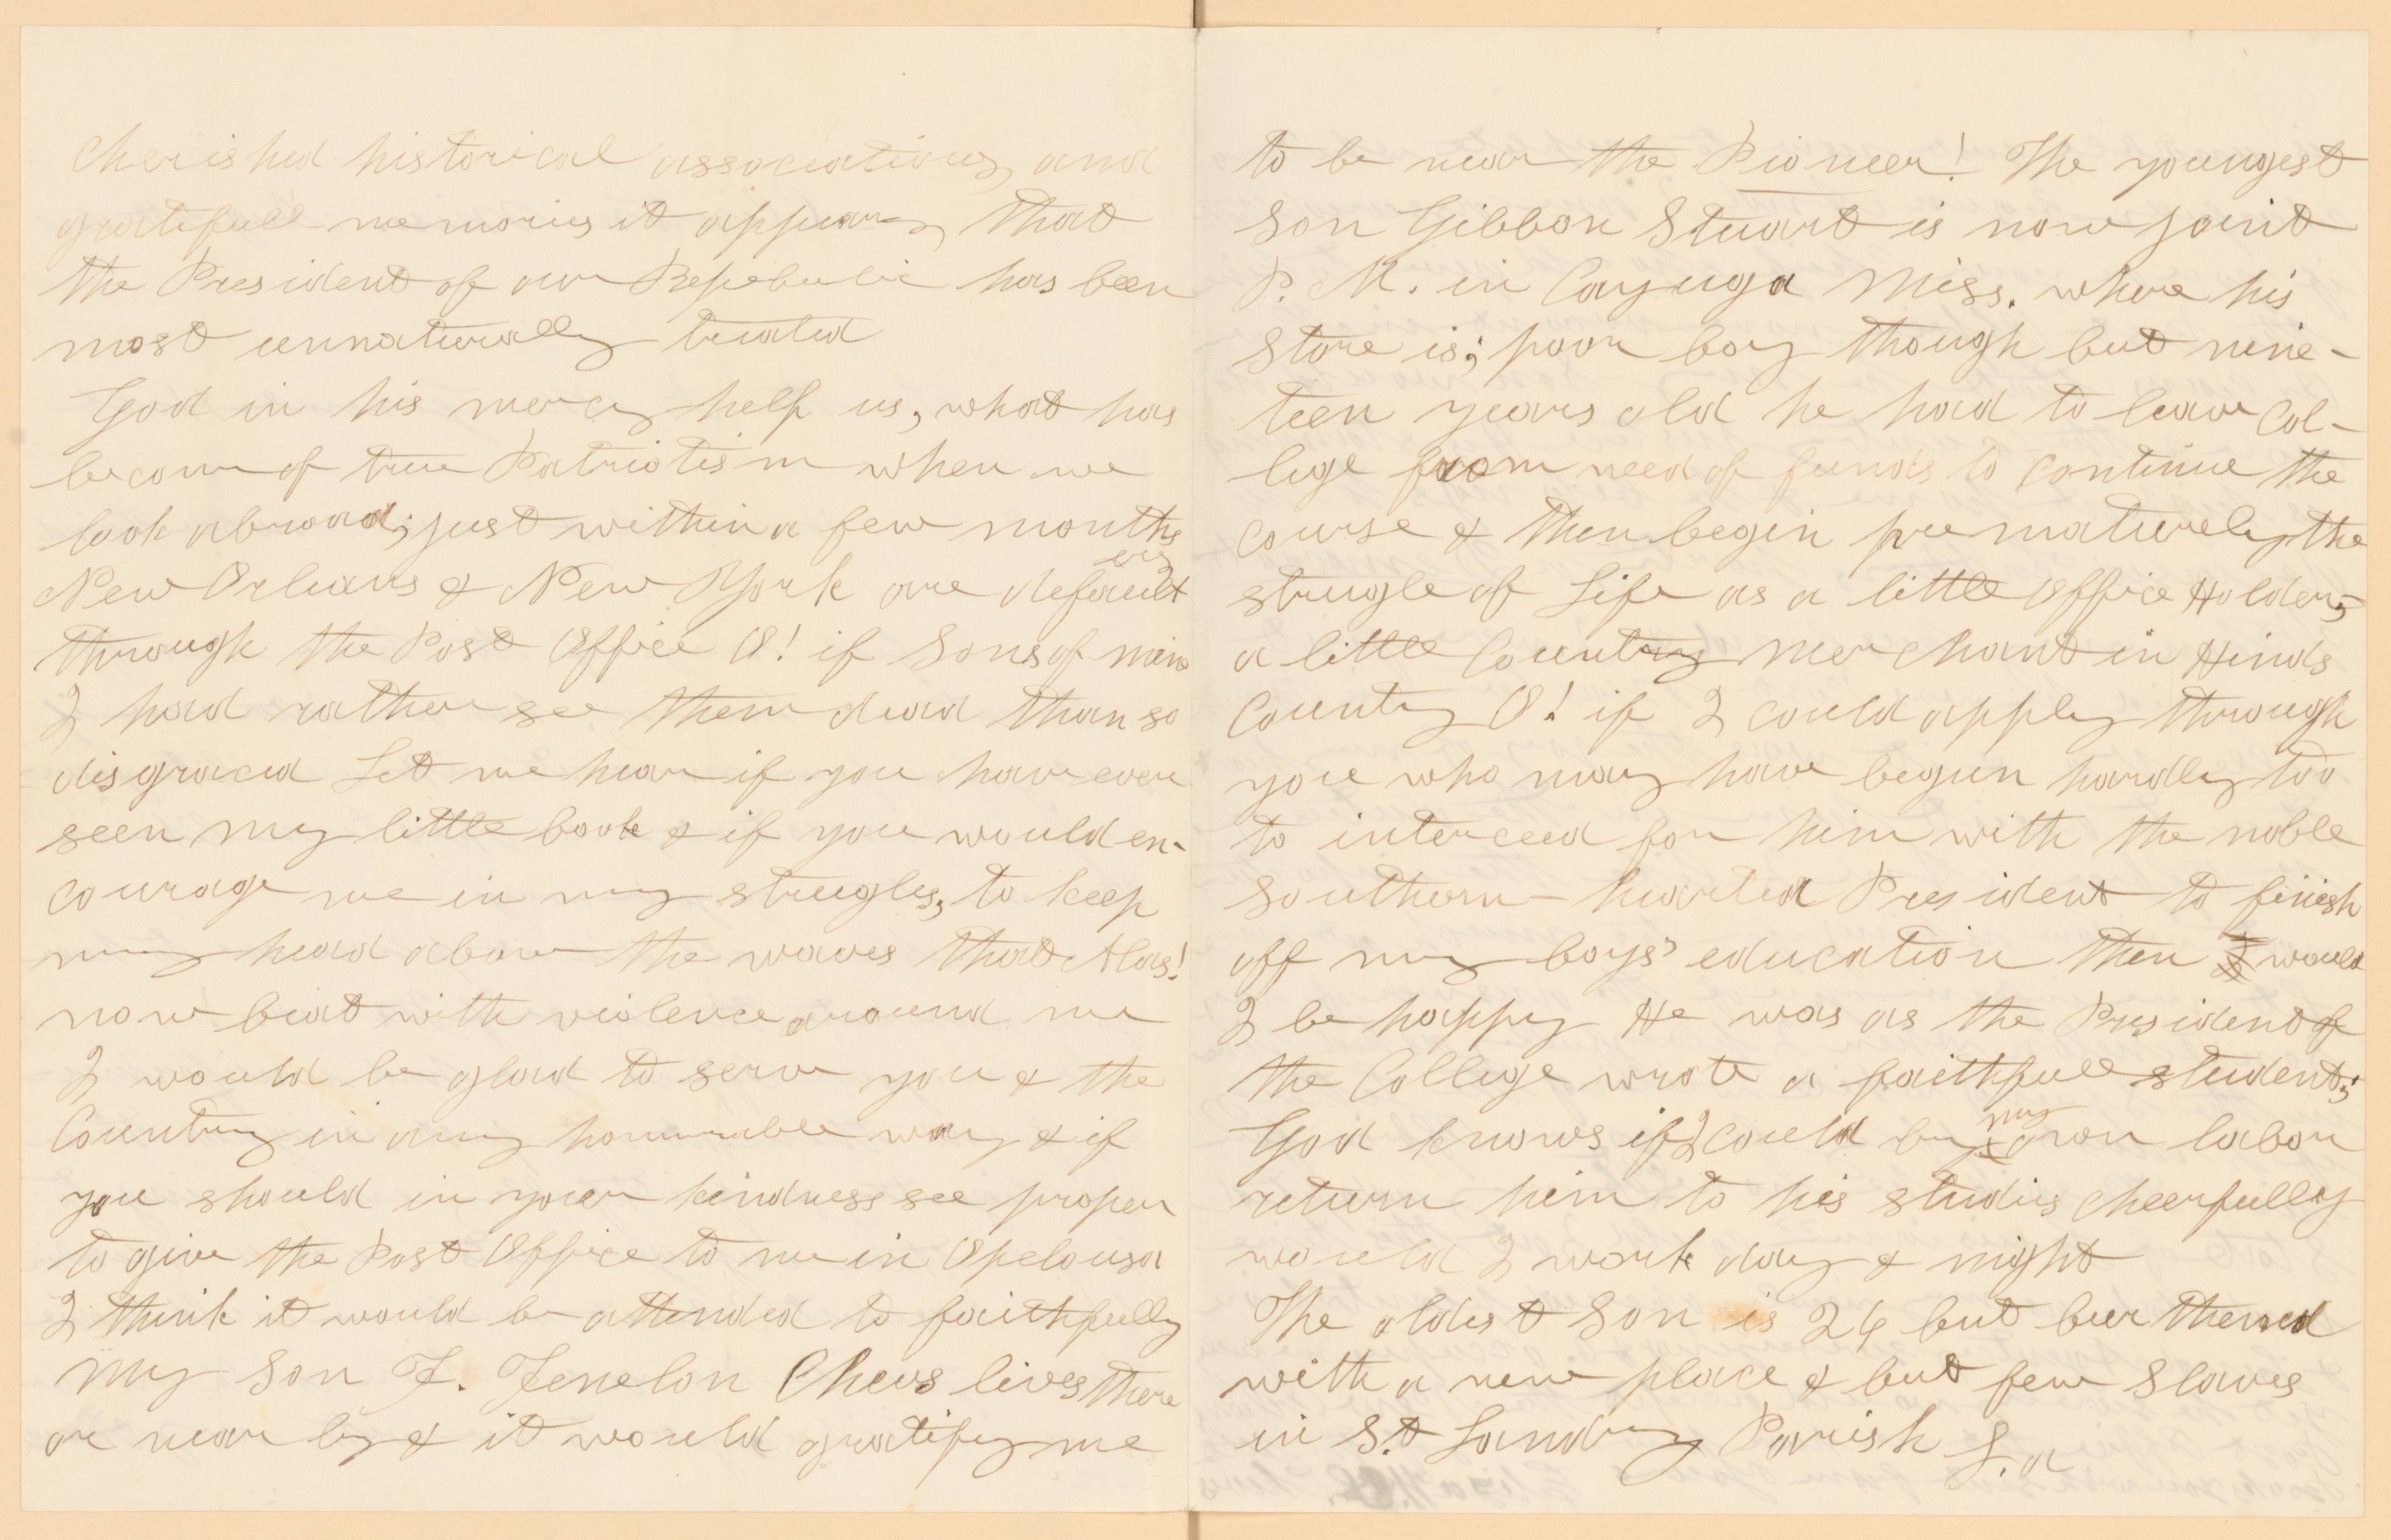 Cherished historical associations, and
gratefull memories it appears, that
the President of our Repebulic has been
most unnaturally treated
God in his mercy help us, what has
become of true Patriotism when we
look abroad; just within a few months
New Orleans & New York are defaulters
through the Post Office O! if Sons of mine
I had rather see them dead than so
disgraced Let me hear if you have ever
seen my little book & if you would en-
courage me in my strugles, to keep
my head above the waves that Alas!
now beat with violence around me
I would be glad to serve you & the
Country in any honourable way & if
you should in your kindness see proper
to give the Post Office to me in Opelousa
I think it would be attended to faithfully
My Son F. Fenelon Chevs lives there
or near by & it would gratify me
to be near the Pioneer! The youngest
Son Gibbon Stuart is now joint
P. M. in Cayuga Miss. where his
Store is; poor boy though but nine-
teen years old he had to leave Col-
lege from need of funds to continue the
course & then begin prematurely, the
strugle of Life as a little Office Holder;
a little Country Merchant in Hinds
County O! if I could apply through
you who may have begun hardly too
to interceed for him with the noble
Southern-hearted President to finish
off my boys' education then would
I be happy He was as the President of
the College wrote a faithfull student;
God knows if I could by my own labor
return him to his studies cheerfully
would I work day & night
The oldest Son is 26 but burthened
with a new place & but few Slaves
in St Landry Parish L.a